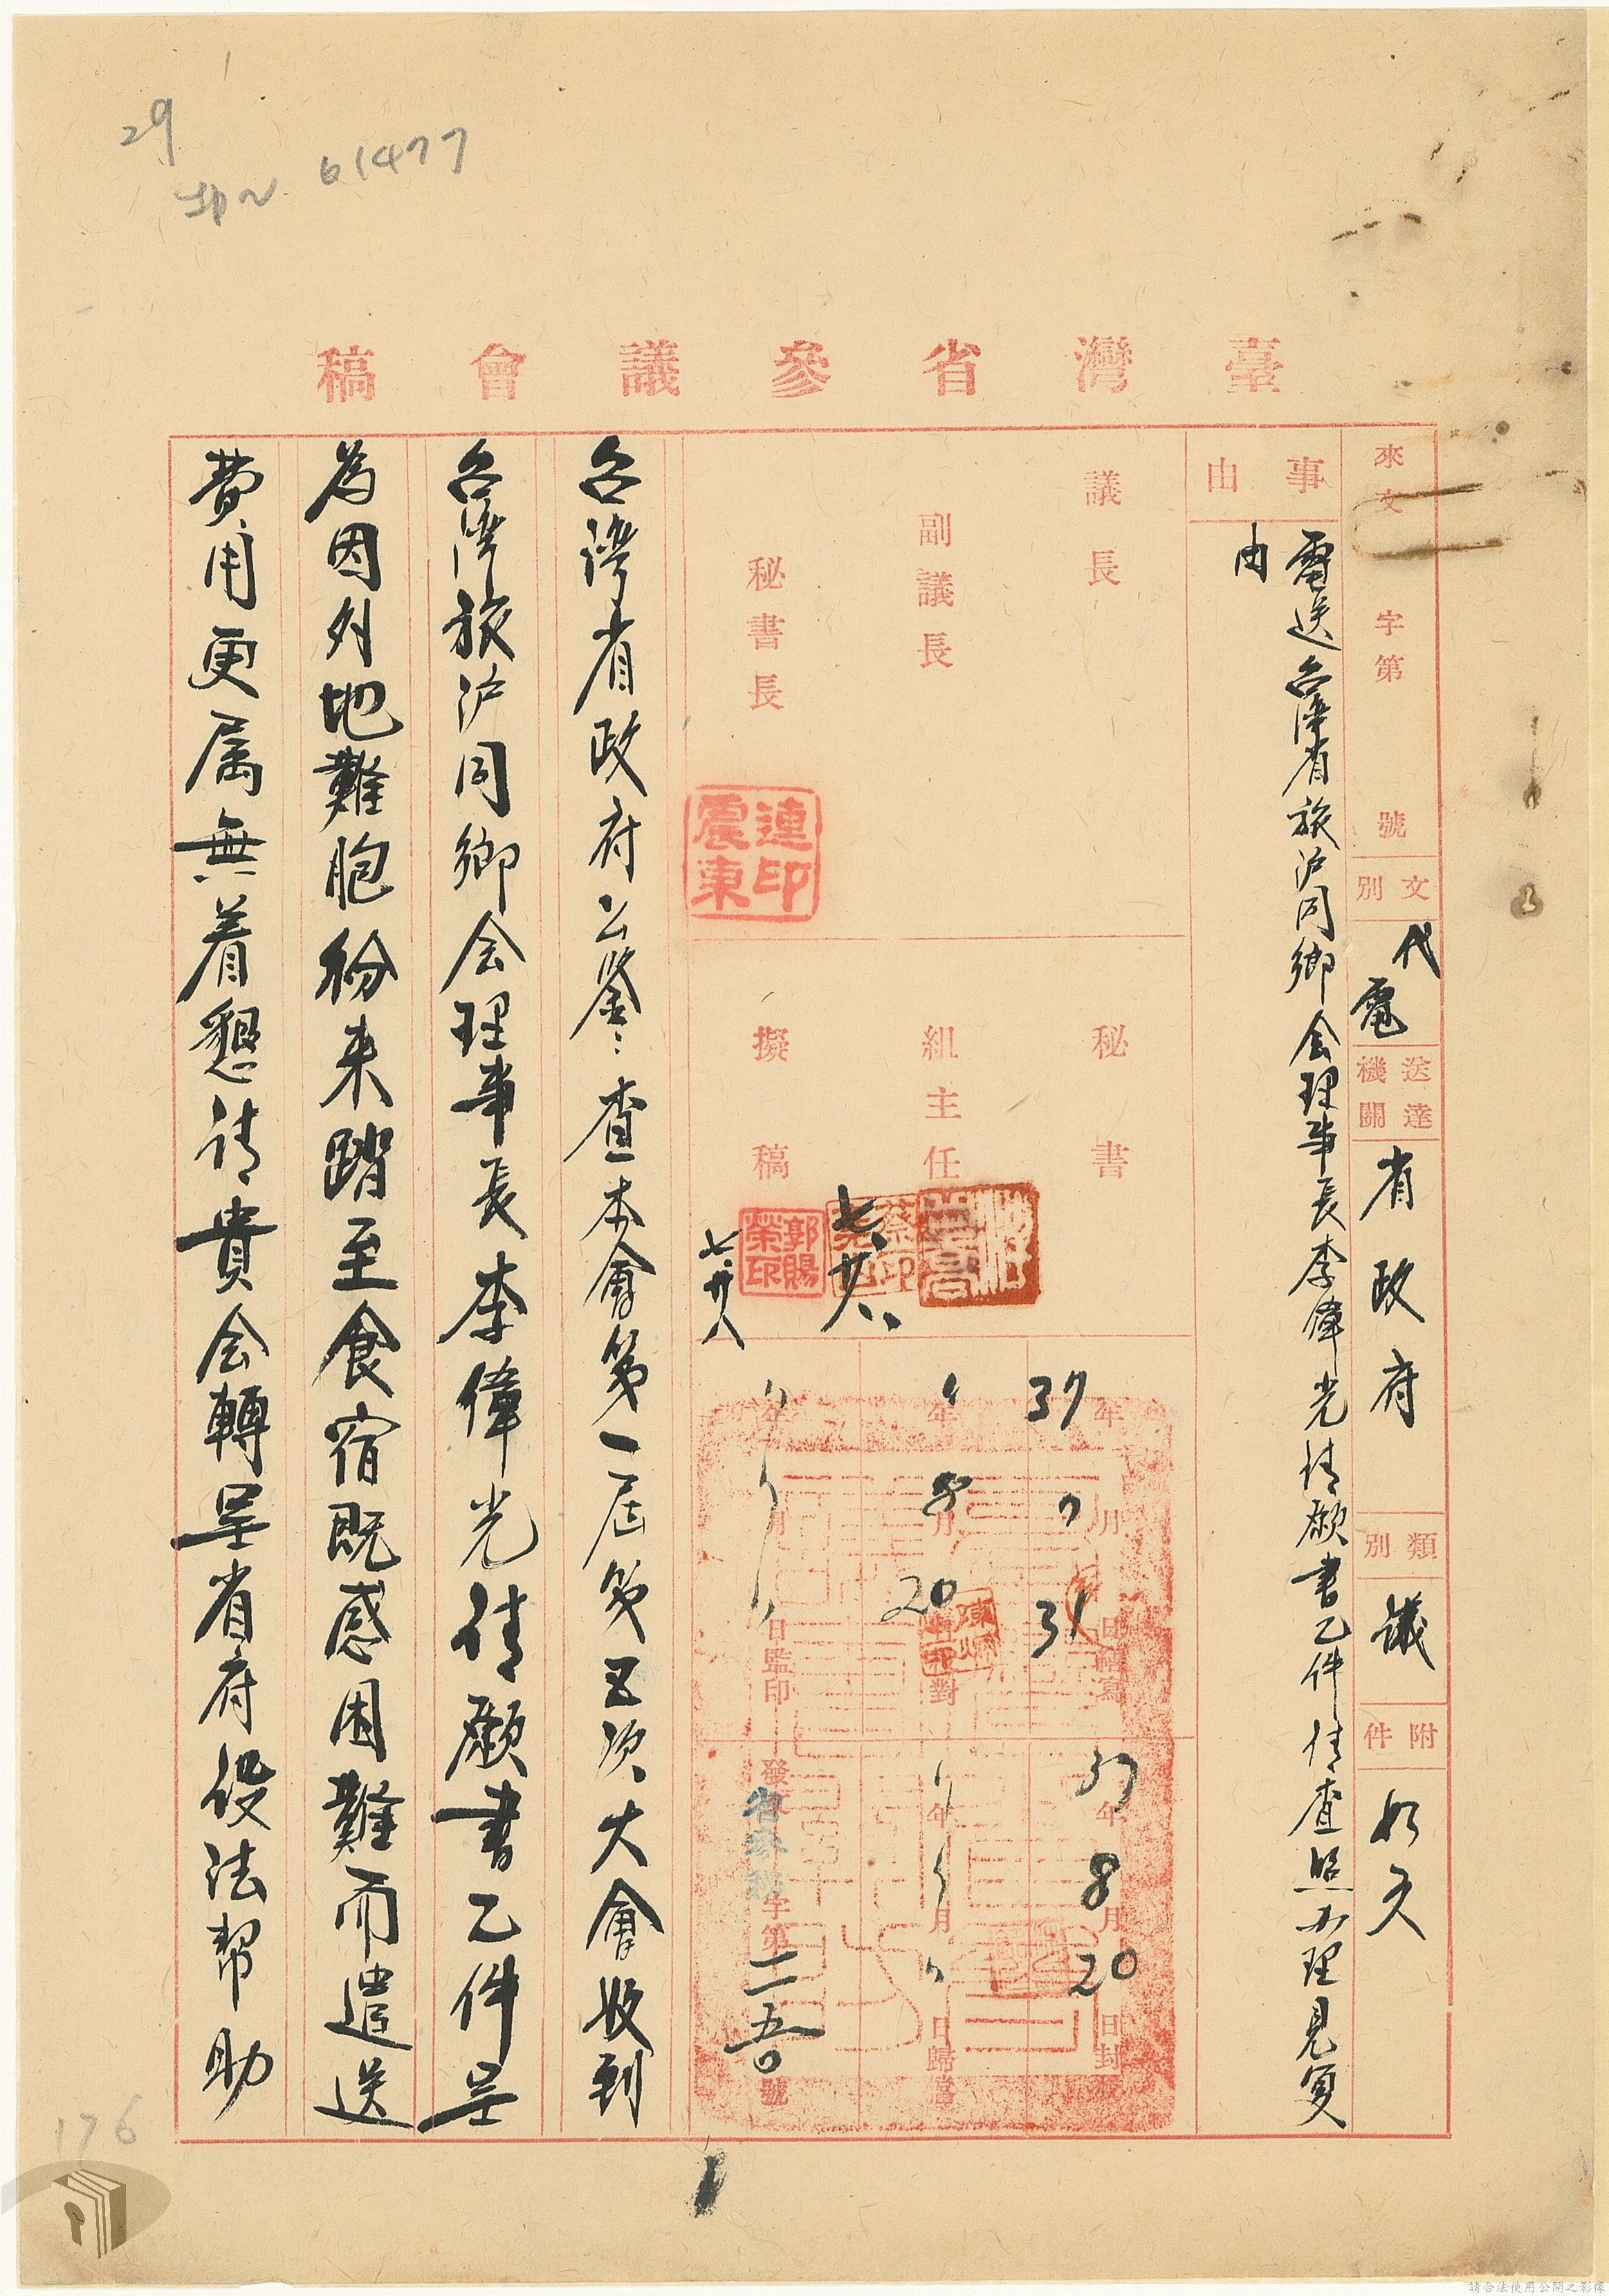 29
61477
臺灣省參議會稿
來文 字第 號
文別 代電
送達機關 省政府
類別 議
附件 如文
事由 電送台灣省旅沪同鄉会理事長李偉光请願書乙件请查照办理見复
由
議長
副議長
秘書長
連震東印
秘書
組主任
擬稿
蔡印
七、廿八、
郭賜榮印
七.廿八
37年7月31日繕寫
〃年8月20日校對
〃年〃月〃日監印
37年8月20日封發
〃年〃月〃日歸檔
發文省參秘字第二五0號
台灣省政府公鑒：查本會第一屆第五次大會收到
台灣旅沪同鄉会理事長李偉光请願書乙件呈
為因外地難胞紛来踏至食宿既感困難而遣送
費用更属無着懇请貴会轉呈省府设法帮助
176
請合法使用公開之影像